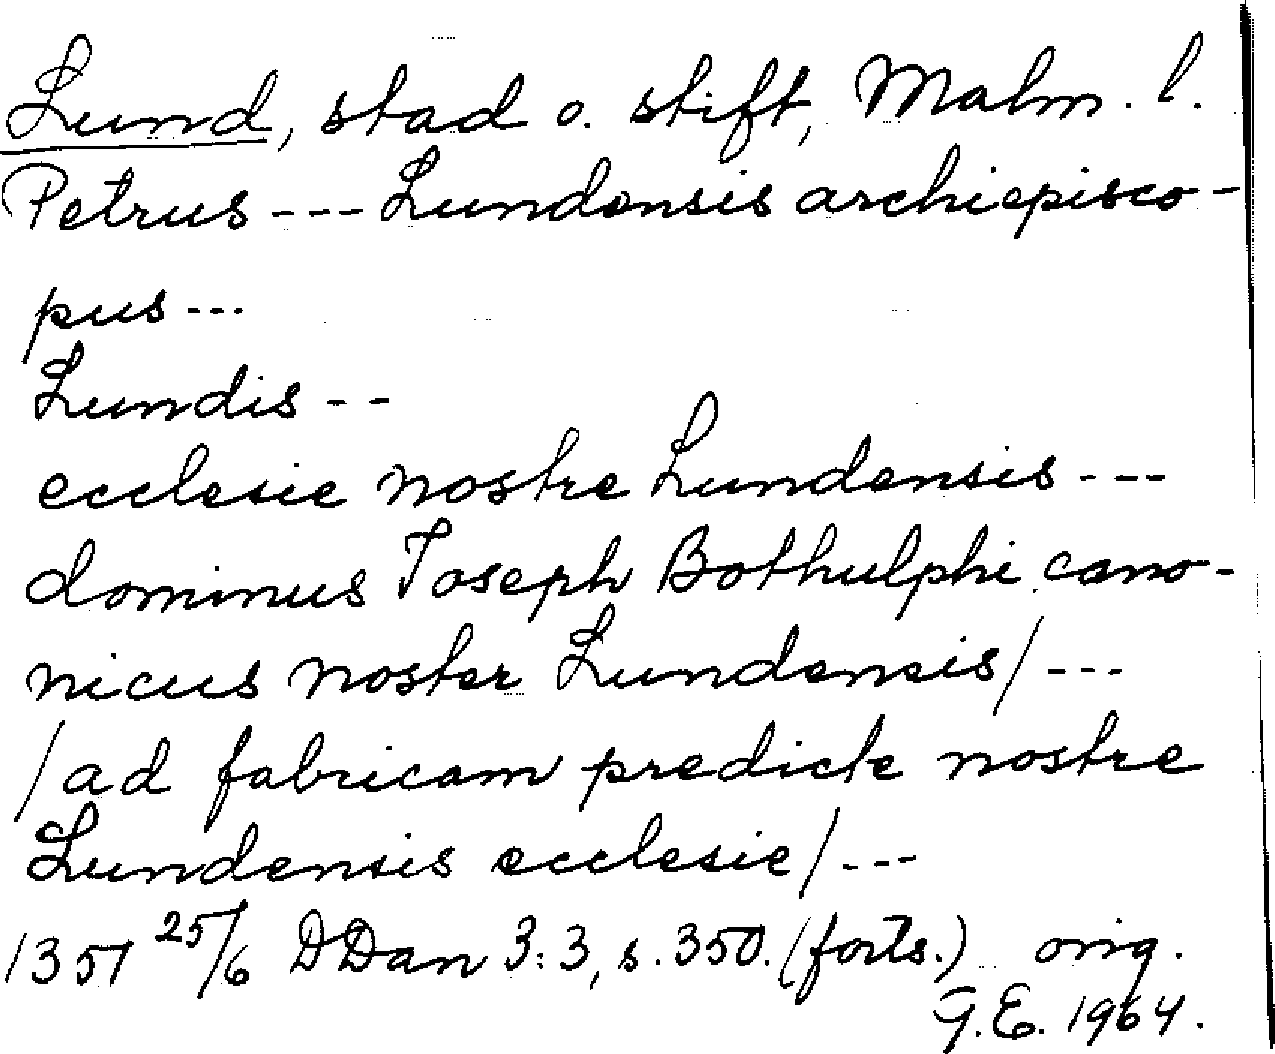 Lund, stad o. stift, Malm. l.
Petrus --- Lundensis archiepisco-
pus ---
Lundis --
ecclesie nostre Lundensis ---
dominus Joseph Bothulphi cano-
nicus noster Lundensis/ ---
/ad fabricam predicte nostre
Lundensis ecclesie/ ---
1351 25/6 DDan 3:3, s. 350. (forts.) orig.
G.E. 1964.